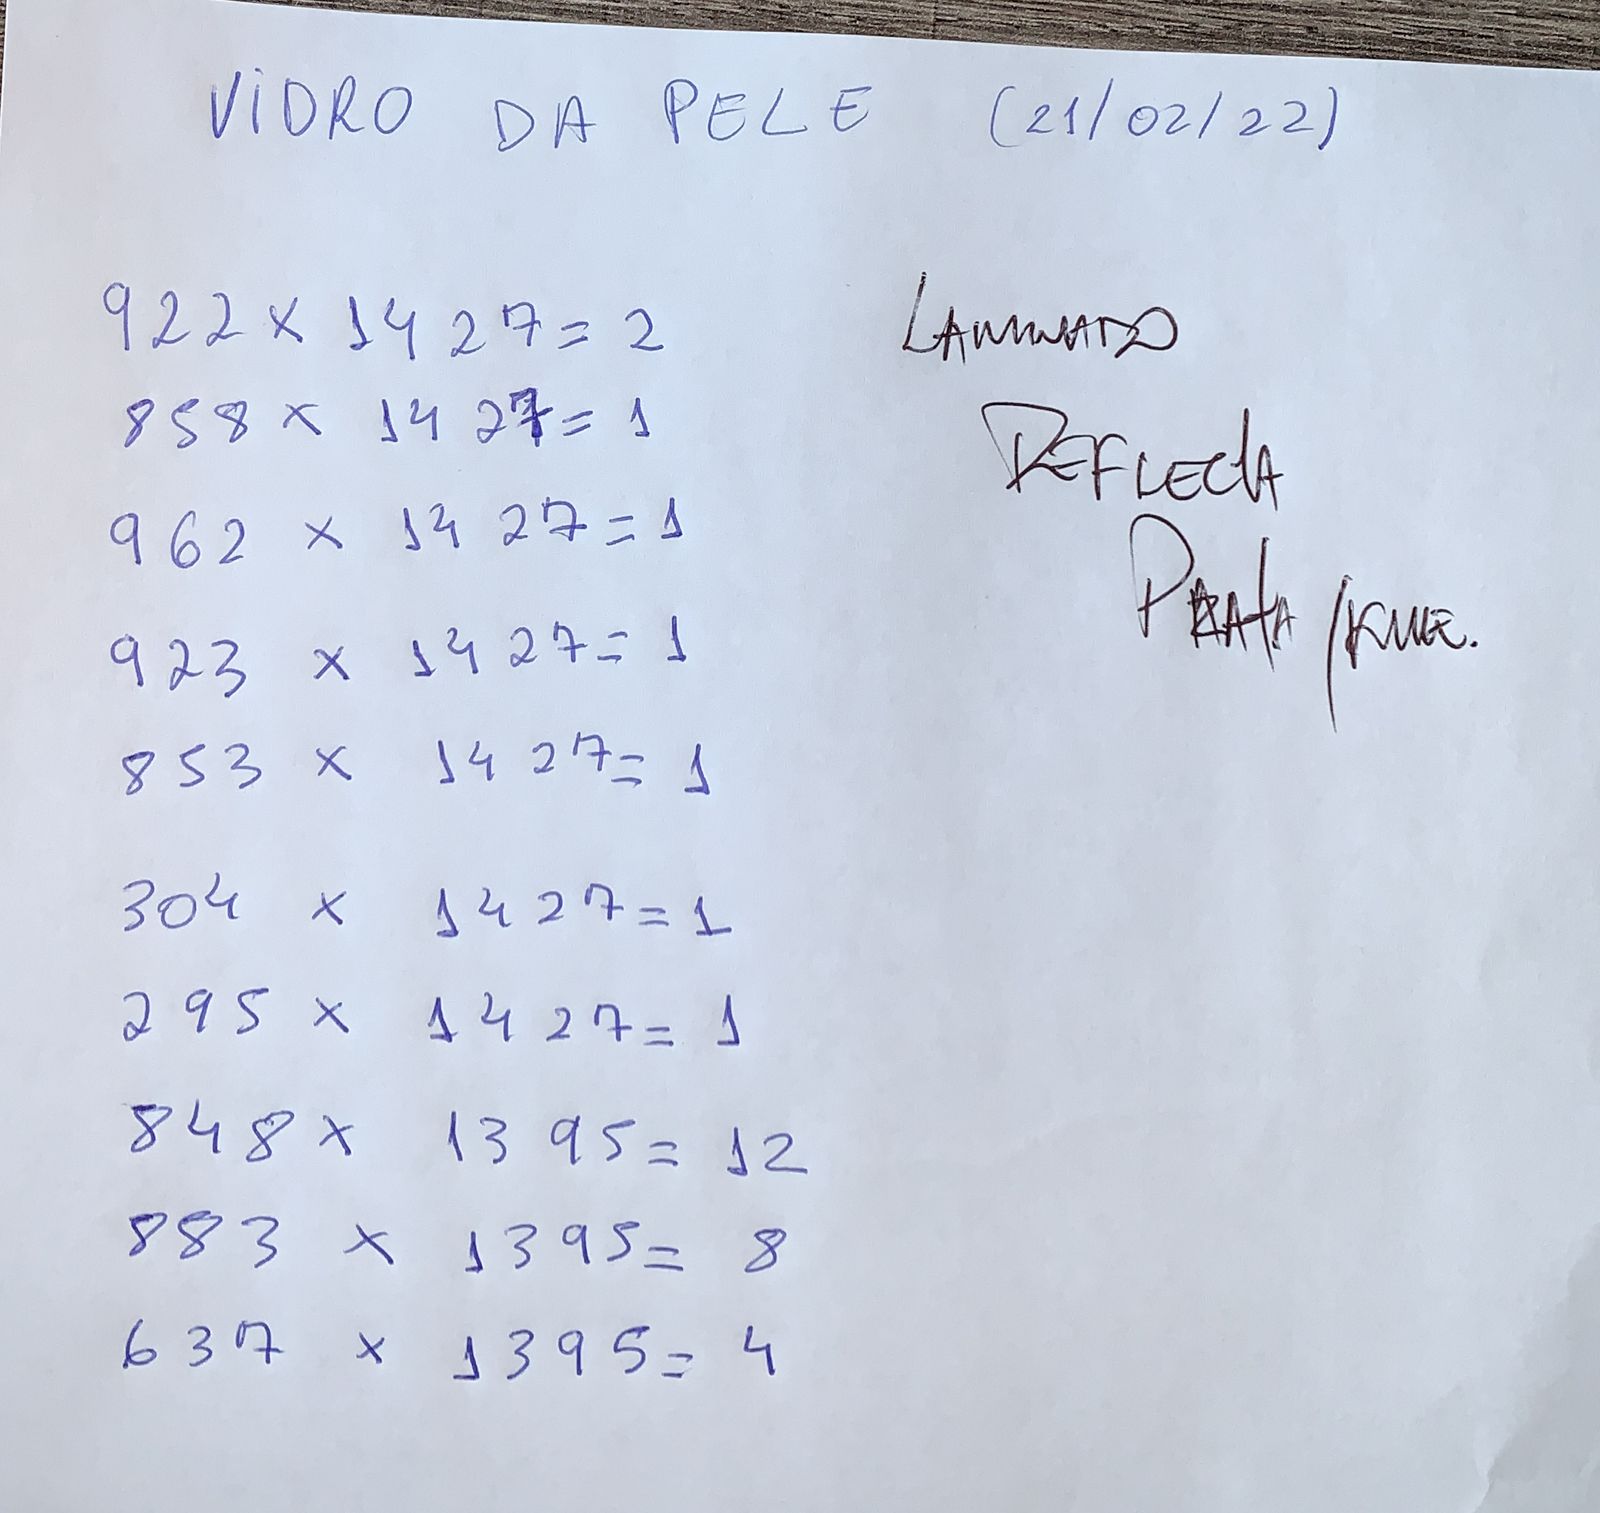 VIDRO DA PELE (21/02/22)
922 x 1427 = 2
858 x 1427 = 1
962 x 1427 = 1
923 x 1427 = 1
853 x 1427 = 1
304 x 1427 = 1
295 x 1427 = 1
848 x 1395 = 12
883 x 1395 = 8
637 x 1395 = 4
LAMINADO
REFLECTA
PRATA /